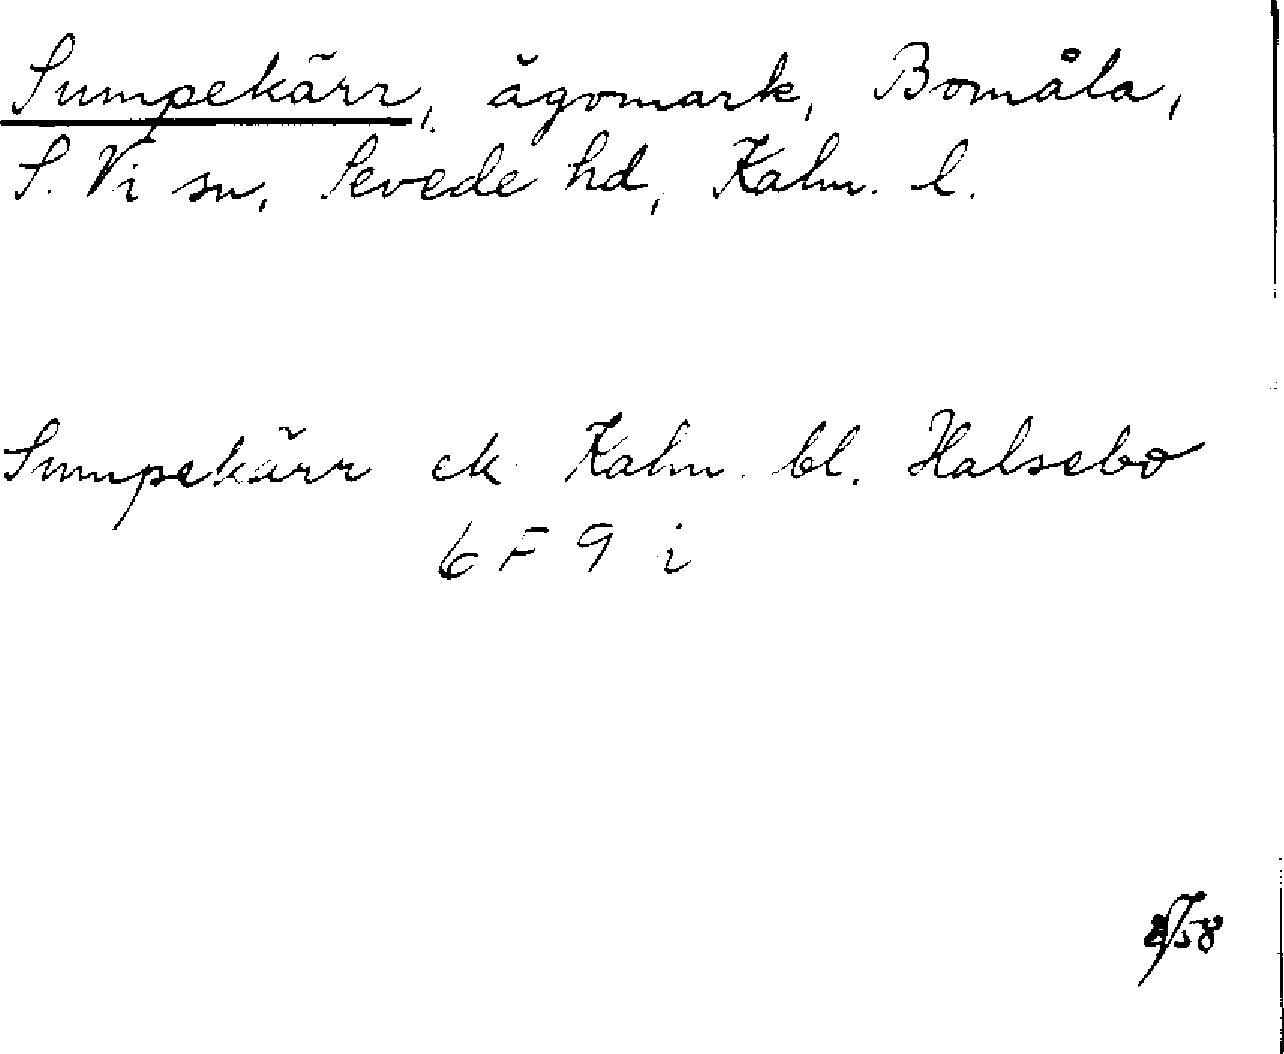 Sumpekärr, ägomark, Bomåla,
S. Vi sn, Sevede hd, Kalm. l.
Sumpekärr ek Kalm. bl. Halsebo
6 F 9 i